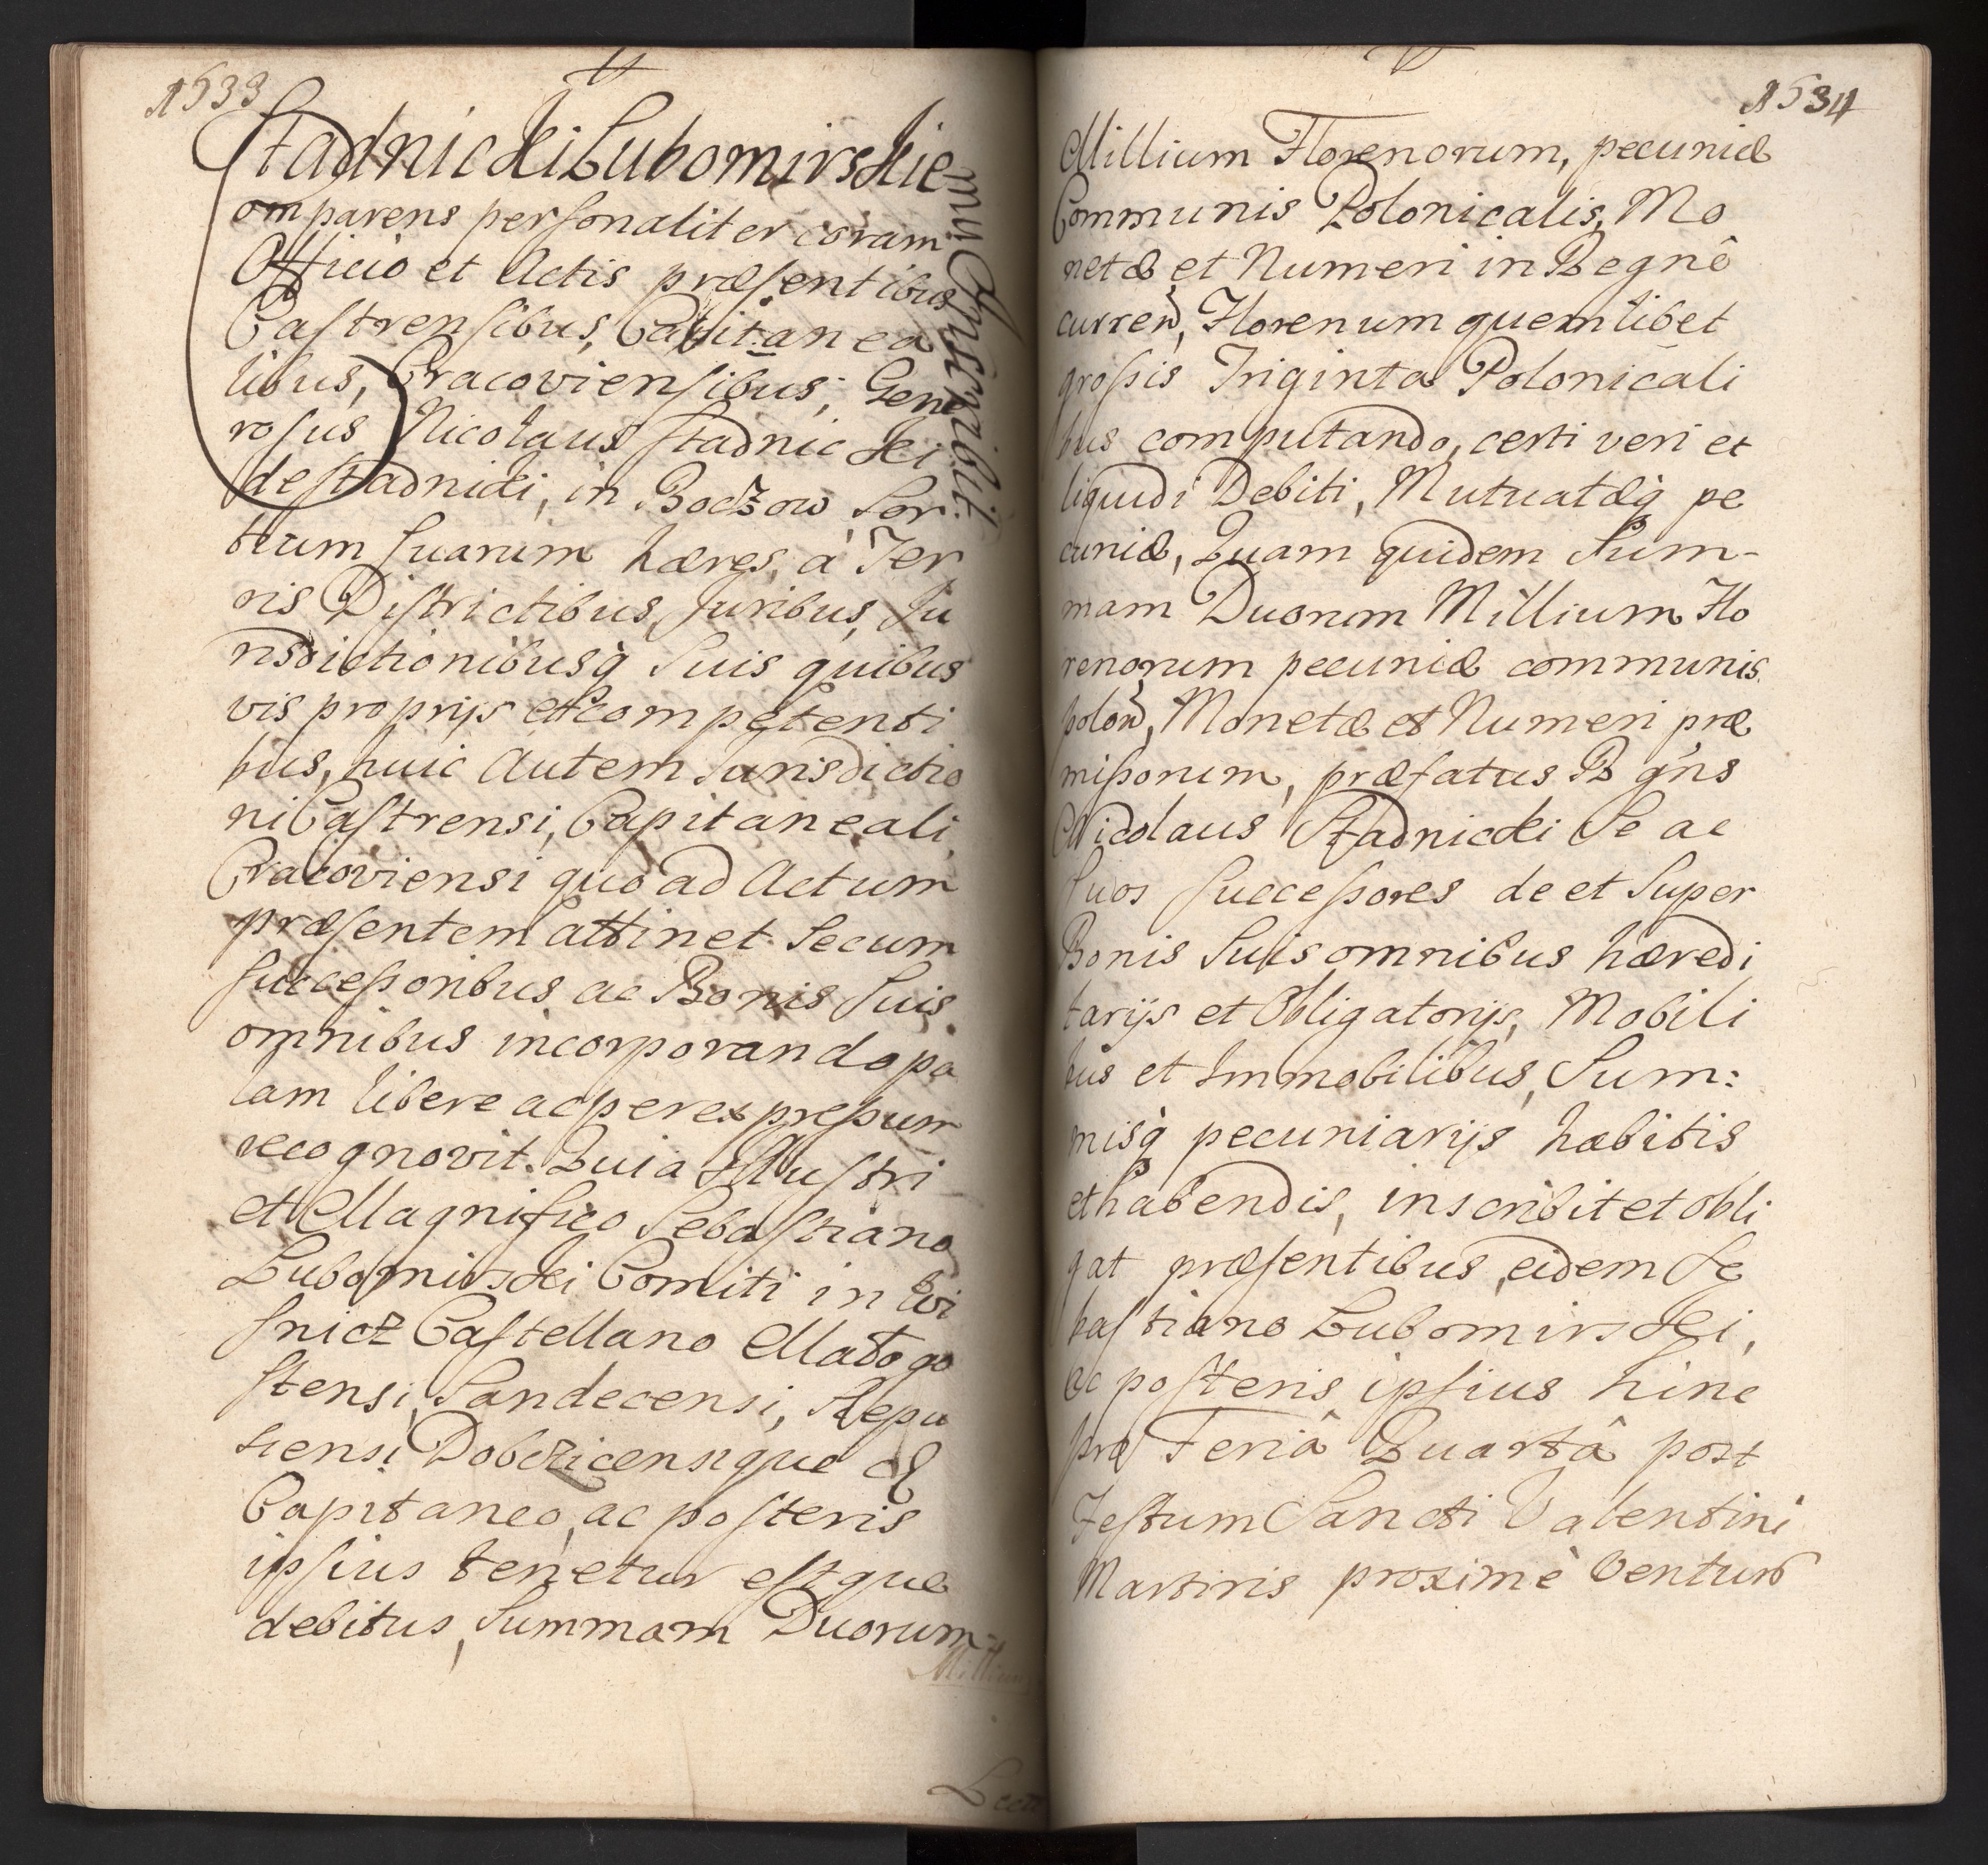 1533
Stadnicki Lubomirskie
mu Inscribit.
omparens personaliter coram
Officio et Actis præsentibus
Castrensibus, Capitanea
libus, Cracoviensibus, Gene
rosus Nicolaus Stadnicki
de Stadniki, in Boczow Sor
tium suarum hæres, à Ter
ris Districtibus, Juribus, Ju
risdictionibusq̀ Suis quibus
vis proprijs et competenti
bus, huic Autem Jurisdictio
ni Castrensi, Capitaneali,
Cracoviensi quo ad Actum
præsentem attinet Secum
successoribus ac Bonis Suis
omnibus incorporando pa
lam libere ac per expressum
recognovit. Quia Illustri
et Magnifico Sebastiano
Lubomirski Comiti in Wi
snicz Castellano Małogo
stensi, Sandecensi, Sæpu
siensi Dobczicensique &
Capitaneo, ac posteris
ipsius tenetur estque
debitus, Summam Duorum
Millium
1534
Millium Florenorum, pecuniæ
Communis Polonicalis, Mo
netæ et Numeri in Regnô
curren, Florenum quemlibet
grossis Triginta Polonicali
bus computando, certi veri et
liquidi Debiti, Mutuatæq̀ pe
cuniæ, Quam quidem Sum-
mam Duorum Millium Flo
renorum pecuniæ communis
polon, Monetæ et Numeri præ
missorum, præfatus R gns
Nicolaus Stadnicki Se ac
Suos successores de et Super
Bonis Suis omnibus hæredi
tarijs et Obligatorijs, Mobili
bus et Immobilibus, Sum:
misq̀ pecuniarijs habitis
et habendis, inscribit et obli
gat præsentibus, eidem Se
bastiano Lubomirski,
ac posteris ipsius hinc
pro Feriâ Quartâ post
Festum Sancti Valentini
Martiris proximè Venturo